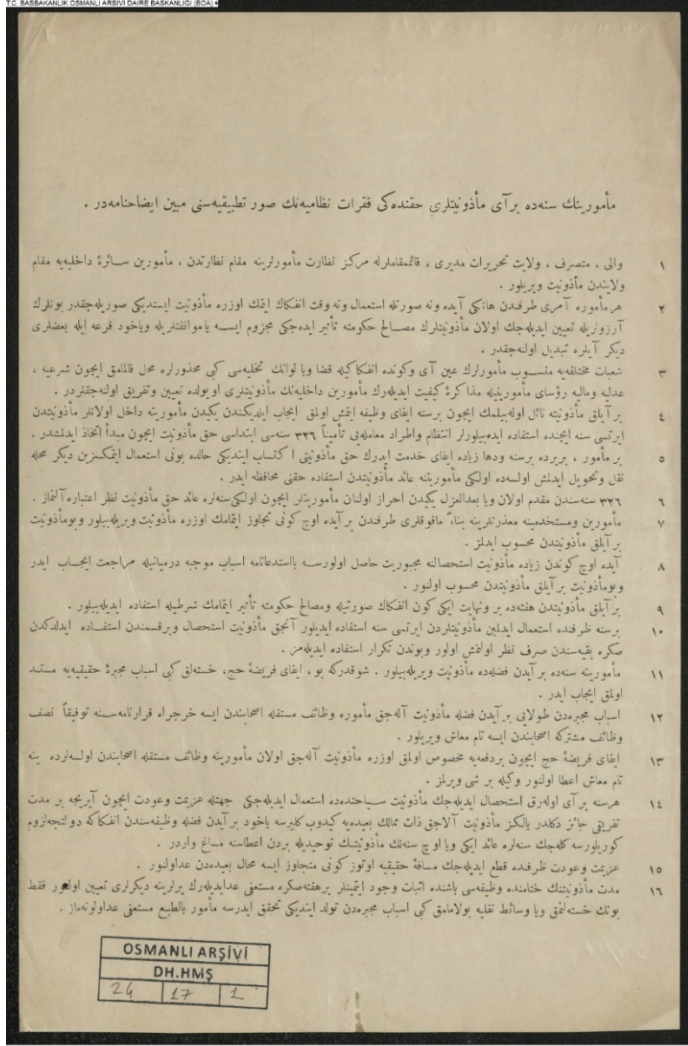 T.C. BASBAKANLIK OSMANLI ARSIVI DAIRE BASKANLIGI (BOA)
مأمورينك سنه‌ده بر آى مأذونيتلرى حقنده‌كى فقرات نظاميه‌نك صور تطبيقيه‌سنى مبين ايضاحنامه‌در .
١ والى ، متصرف ، ولايت تحريرات مديرى ، قائممقاملرله مركز نظارت مأمورلرينه مقام نظارتدن ، مأمورين سائرهٔ داخليه‌يه مقام
ولايتدن مأذونيت ويريلور .
٢ هر مأموره آمرى طرفندن هانكى آيده ونه صورتله استعمال ونه وقت انفكاك ايتمك اوزره مأذونيت ايستديكى صوريله‌جقدر بونلرك
آرزولريله تعيين ايديله‌جك اولان مأذونيتلرك مصالح حكومته تأثير ايده‌جكى مجزوم ايسه ياموافقتلريله وياخود قرعه ايله بعضلرى
ديكر آيلره تبديل اولنه‌جقدر .
٣ شعبات مختلفه‌يه منسوب مأمورلرك عين آى وكونده انفكاكيله قضا ويا لوانك تخليه‌سى كبى محذورلره محل قالمامق ايچون شرعيه ،
عدليه وماليه رؤساى مأمورينيله مذاكرهٔ كيفيت ايديله‌رك مأمورين داخليه‌نك مأذونيتلرى او يولده تعيين وتفريق اولنه‌جقلردر .
٤ بر آيلق مأذونيته نائل اوله‌بيلمك ايچون برسنه ايفاى وظيفه ايتمش اولمق ايجاب ايده‌جكندن يكيدن مأموريته داخل اولانلر مأذونيتدن
ايرتسى سنه ايچنده استفاده ايده‌بيلورلر انتظام واطراد معامله‌يى تأميناً ٣٢٦ سنه‌سى ابتداسى حق مأذونيت ايچون مبدأ اتخاذ ايدلمشدر .
٥ بر مأمور ، بريرده برسنه ودها زياده ايفاى خدمت ايده‌رك حق مأذونيتى اكتساب ايتديكى حالده بونى استعمال ايتمكسزين ديكر محله
نقل وتحويل ايدلمش اولسه‌ده اولكى مأموريتنه عائد مأذونيتدن استفاده حقنى محافظه ايدر .
٦ ٣٢٦ سنه‌سندن مقدم اولان ويا بعدالعزل يكيدن احراز اولنان مأموريتلر ايچون اولكى سنه‌لره عائد حق مأذونيت نظر اعتباره آلنماز .
٧ مأمورين ومستخدمينه معذرتلرينه بناءً مافوقلرى طرفندن بر آيده اوچ كونى تجاوز ايتمامك اوزره مأذونيت ويريله‌بيلور وبومأذونيت
بر آيلق مأذونيتدن محسوب ايدلمز .
٨ آيده اوچ كوندن زياده مأذونيت استحصالنه مجبوريت حاصل اولورسه بااستدعانامه اسباب موجبه درميانيله مراجعت ايجاب ايدر
وبومأذونيت بر آيلق مأذونيتدن محسوب اولنور .
٩ بر آيلق مأذونيتدن هفته‌ده بر ونهايت ايكى كون انفكاك صورتيله ومصالح حكومته تأثير ايتمامك شرطيله استفاده ايديله‌بيلور .
١٠ برسنه ظرفنده استعمال ايدلمين مأذونيتلردن ايرتسى سنه استفاده ايديلور آنجق مأذونيت استحصال وبرقسمندن استفاده ايدلدكدن
صكره بقيه‌سندن صرف نظر اولنمش اولور وبوندن تكرار استفاده ايديله‌مز .
١١ مأمورينه سنه‌ده بر آيدن فضله‌ده مأذونيت ويريله‌بيلور . شوقدركه بو ، ايفاى فريضهٔ حج ، خسته‌لق كبى اسباب مجبرهٔ حقيقيه‌يه مستند
اولمق ايجاب ايدر .
١٢ اسباب مجبره‌دن طولايى بر آيدن فضله مأذونيت آله‌جق مأموره وظائف مستقله اصحابندن ايسه خرجراه قرارنامه‌سنه توفيقاً نصف
وظائف مشتركه اصحابندن ايسه تام معاش ويريلور .
١٣ ايفاى فريضهٔ حج ايچون بردفعه‌يه مخصوص اولمق اوزره مأذونيت آله‌جق اولان مأمورينه وظائف مستقله اصحابندن اولسه‌لرده ينه
تام معاش اعطا اولنور وكيله بر شى ويرلمز .
١٤ هرسنه بر آى اوله‌رق استحصال ايديله‌جك مأذونيت سياحتده‌ده استعمال ايديله‌جكى جهتله عزيمت وعودت ايچون آيريجه بر مدت
تفريقى جائز دكلدر يالكز مأذونيت آلاجق ذات ممالك بعيده‌يه كيدوب كليرسه ياخود بر آيدن فضله وظيفه‌سندن انفكاكه دولتجه‌لزوم
كوريلورسه كله‌جك سنه‌لره عائد ايكى ويا اوچ سنه‌لك مأذونيتنك توحيديله بردن اعطاسنه مساغ واردر .
١٥ عزيمت وعودت ظرفنده قطع ايديله‌جك مسافهٔ حقيقيه اوتوز كونى متجاوز ايسه محال بعيده‌دن عداولنور .
١٦ مدت مأذونيتنك ختامنده وظيفه‌سى باشنده اثبات وجود ايتمينلر برهفته‌صكره مستعفى عدايديله‌رك يرلرينه ديكرلرى تعيين اولنور فقط
بونك خسته‌لنمق ويا وسائط نقليه بولامامق كبى اسباب مجبره‌دن تولد ايتديكى تحقق ايدرسه مأمور بالطبع مستعفى عداولونه‌ماز .
OSMANLI ARŞİVİ
DH.HMŞ
24 17 1